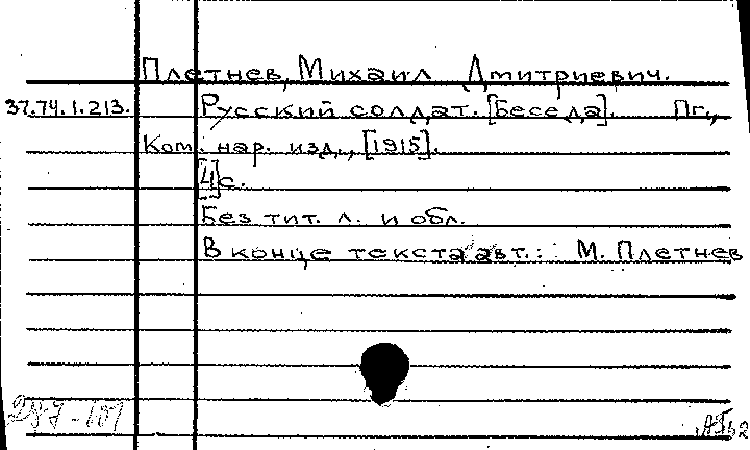 Плетнев, Михаил Дмитриевич.
37.74.1.213. Русский солдат. [Беседа]. Пг.,
Ком. нар. изд., [1915].
[4]с.
Без тит. л. и обл.
В конце текста авт.: М. Плетнев
287-101